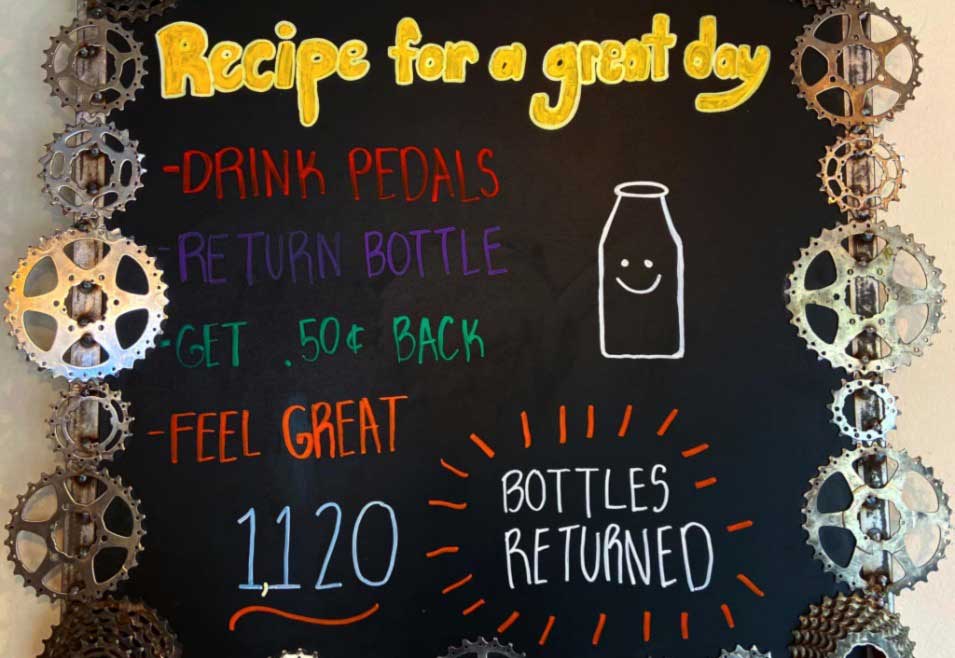 Recipe for a great day
-DRINK PEDALS
-RETURN BOTTLE
-GET .50¢ BACK
-FEEL GREAT
1,120
BOTTLES
RETURNED